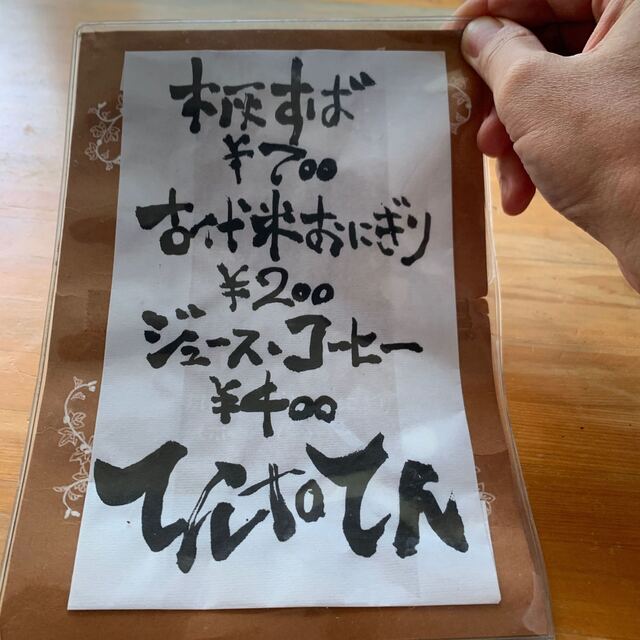 木灰すば
¥700
古代米おにぎり
¥200
ジュース・コーヒー
¥400
てんtoてん